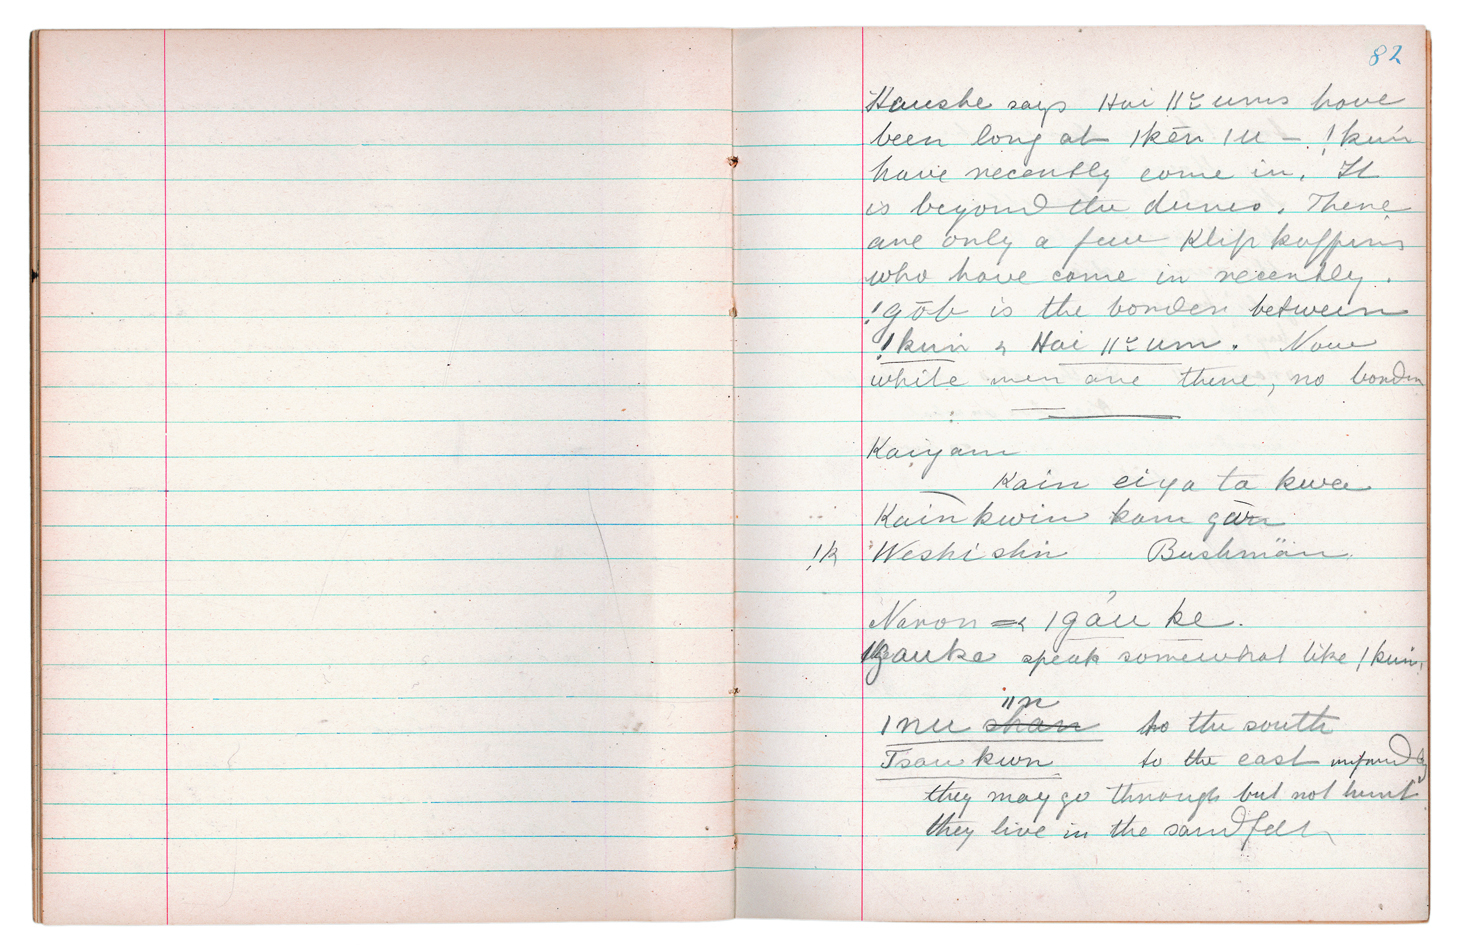 82
Haushe says Hai ǁ˜ums have
been long at Ikēn Iu — !kun
have recently come in. It
is beyond the dunes. There
are only a few Klip kaffirs
who have come in recently.
!gōb is the border between
!kun & Hai ǁ˜um. Now
white men are there, no border
Kaiyam
Kain eiya ta kwa
Kain kwin kam gārn
!k Weshi shin Bushmän
Naron = Igáu ke.
Igauke speak somewhat like !kun.
ǁn
Inu shan to the south
Tsau kwn to the east
they may go through but not hunt
they live in the sandfelt